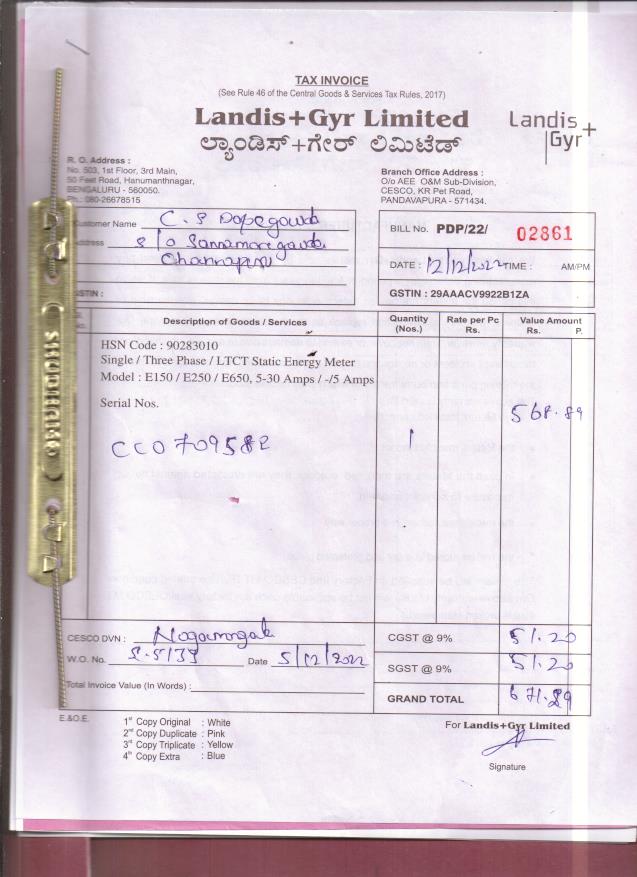 TAX INVOICE
(See Rule 46 of the Central Goods & Services Tax Rules, 2017)
Landis+Gyr Limited
ಲ್ಯಾಂಡಿಸ್+ಗೇರ್ ಲಿಮಿಟೆಡ್
Landis+
Gyr
R. O. Address :
No. 503, 1st Floor, 3rd Main,
50 Feet Road, Hanumanthnagar,
BENGALURU - 560050.
Ph.: 080-26678515
Branch Office Address :
O/o AEE O&M Sub-Division,
CESCO, KR Pet Road,
PANDAVAPURA - 571434.
Customer Name C. S
Address S/o
GSTIN :
BILL No. PDP/22/ 02861
DATE : 12/12/2022 TIME : AM/PM
GSTIN : 29AAACV9922B1ZA
No. Description of Goods / Services Quantity (Nos.) Rate per Pc Rs. Value Amount Rs. P.
HSN Code : 90283010
Single / Three Phase / LTCT Static Energy Meter
Model : E150 / E250 / E650, 5-30 Amps / -/5 Amps
Serial Nos. 568.89
CC0709582 1
CESCO DVN :
W.O. No. Date 5/12/2022
Total Invoice Value (In Words) :
CGST @ 9% 51.20
SGST @ 9% 51.20
GRAND TOTAL 671.29
E.&O.E.
1st Copy Original : White
2nd Copy Duplicate : Pink
3rd Copy Triplicate : Yellow
4th Copy Extra : Blue
For Landis+Gyr Limited
Signature